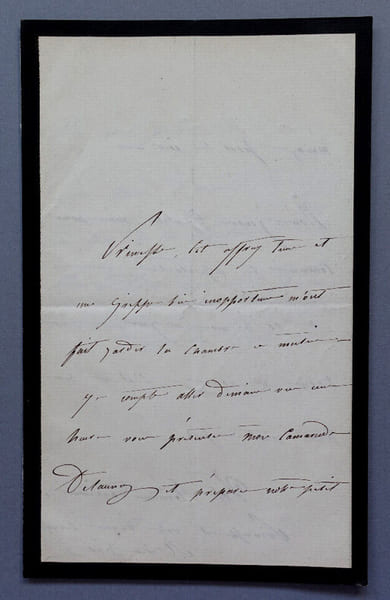 Princesse, cet affreux temps et
une Grippe très inopportune m'ont
fait garder la Chambre ce matin
je compte aller demain vers une
heure vous présenter mon Camarade
Delaunay et préparer notre petit